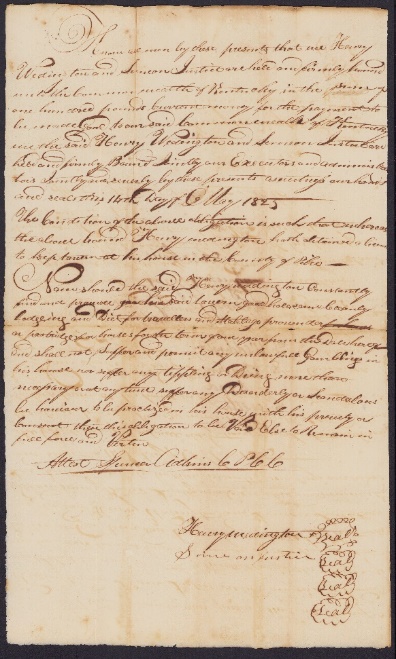 Know all men by these presents that we Henry
Weddington and Simeon Justice are held and firmly bound
unto the Commonwealth of Kentucky in the sum of
one hundred pounds current money for the payment to
be made good to our said Commonwealth of Kentucky
we the said Henry Weddington and Simeon Justice
here and firmly Bound Jointly our Executors and administra
tors Jointly and severally by these presents sealed with our hands
and seal this 14th Day of May 1825
The Condition of the above obligation is such that whereas
the above bound Henry weddington hath obtained a licence
to keep tavern at his house in the County of Pike
Now should the said Henry weddington Constantly
find and provide in his said tavern good wholesome Cleanly
lodging and Diet for travellers and Stableage provender
or pasturage for horses for the term of one year from this date
and shall not suffer and permit any unlawfull Gambling in
his house nor suffer any tippling or Drink more than
necessary or at any time suffer any Disorderly or Scandalous
be haviour to be practized in his house with his privity or
Consent then this obligation to be Void Else to Remain in
full force and Virtue
Attest Spencer Adkins C P C C
Henry weddington Seal
Simeon Justice Seal
Seal
Seal